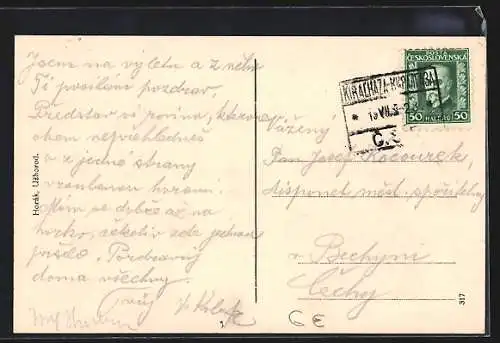 Jsem na výletu a z něho
Ti posílám pozdrav.
Představ si rovinu, kterou
okem nepřehlédneš
a z jedné strany
vroubenou horami.
Mám se dobře až na
horko, ačkoliv zde jednou
pršelo. Pozdravuj
doma všechny.
Horák, Užhorod.
POŠTA
ČESKOSLOVENSKÁ
50 HALÉŘŮ 50
KIRALHAZA
* 19 VII.
Č.S.
Vážený
Pan Josef Kocourek,
disponent měst. spořitelny
v Bechyni
Čechy
317